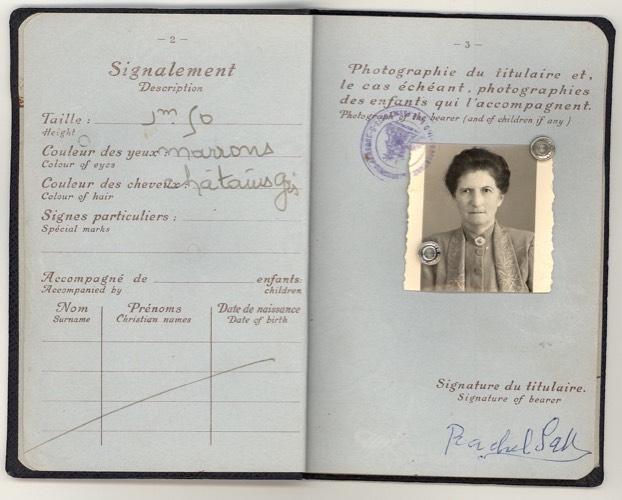 – 2 –
Signalement
Description
Taille : 1m 50
Height
Couleur des yeux : marrons
Colour of eyes
Couleur des cheveux : châtains gris
Colour of hair
Signes particuliers :
Spécial marks
Accompagné de enfants:
Accompanied by children
Nom Prénoms Date de naissance
Surname Christian names Date of birth
– 3 –
Photographie du titulaire et,
le cas échéant, photographies
des enfants qui l'accompagnent.
Photograph of the bearer (and of children if any)
Signature du titulaire.
Signature of bearer
Rachel